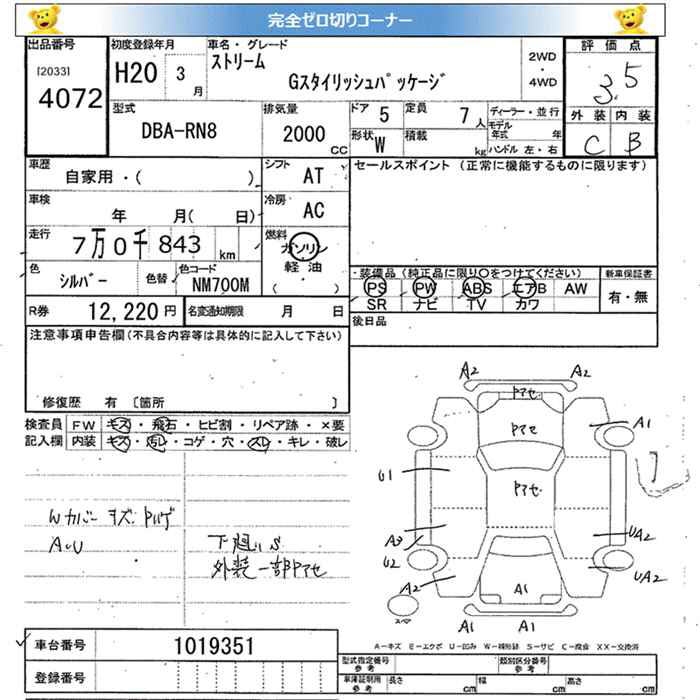 完全ゼロ切りコーナー
出品番号
[2033]
4072
初度登録年月
H20 3月
車名・グレード
ストリーム
Gスタイリッシュパッケージ
2WD
・
4WD
評価点
3.5
外装 内装
C B
型式
DBA-RN8
排気量
2000 CC
ドア 5
定員 7人
形状 W
積載 kg
ディーラー・並行
モデル年式 年
ハンドル 左・右
車歴
自家用・( )
シフト AT
セールスポイント (正常に機能するものに限ります)
車検
年 月( 日)
冷房 AC
走行
7万0千843 km
燃料
ガソリン
軽油
( )
色
シルバー
色替
色コード
NM700M
・装備品(純正品に限り○をつけてください)
PS PW ABS エアB AW
SR ナビ TV カワ
新車保証書
有・無
R券 12,220円
名変通知期限 月 日
後日品
注意事項申告欄(不具合内容等は具体的に記入して下さい)
修復歴 有 〔箇所 〕
検査員記入欄
FW キズ・飛石・ヒビ割・リペア跡・×要
内装 キズ・汚レ・コゲ・穴・スレ・キレ・破レ
Wカバー キズ・Pハゲ
A・U
下廻りS
外装一部Pアセ
A2 A2
Pアセ
Pアセ
A1
U1
Pアセ
A3
U2
UA2
A2
A1
UA2
スペア
A1 A1
A−キズ E−エクボ U−凹み W−補修跡 S−サビ C−腐食 XX−交換済
車台番号 1019351
登録番号
型式指定番号
参考
類別区分番号
参考
車庫証明用
参考
長さ cm
幅 cm
高さ cm